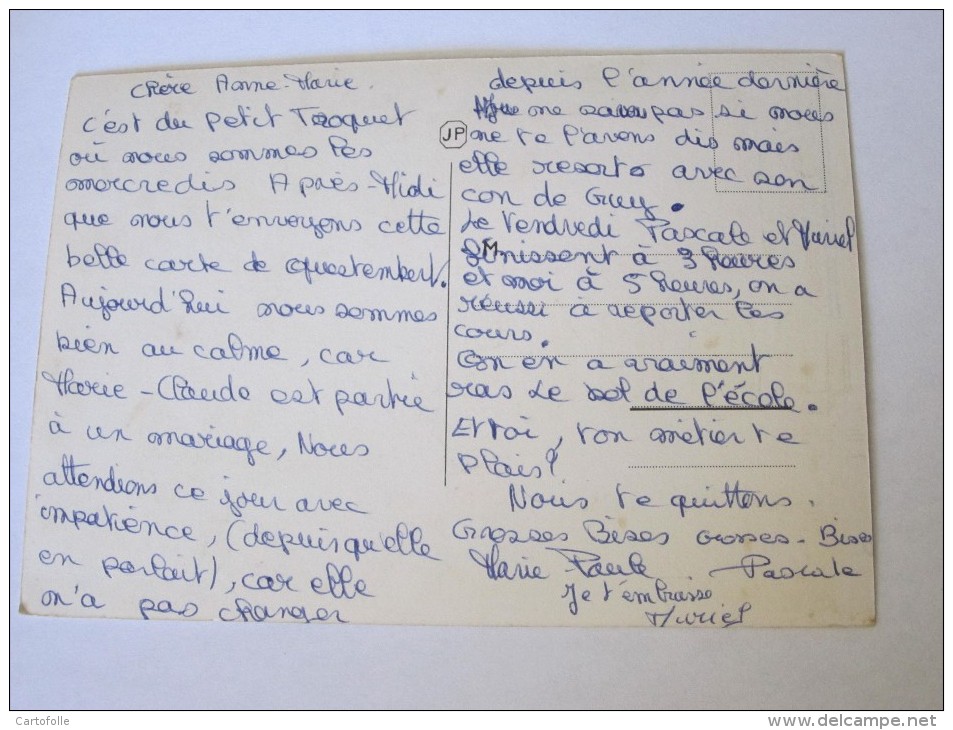 Chère Anne-Marie.
c'est du petit Troquet
où nous sommes les
mercredis Après-Midi
que nous t'envoyons cette
belle carte de Questembert.
Aujourd'hui nous sommes
bien au calme, car
Marie-Claude est partie
à un mariage, Nous
attendions ce jour avec
impatience, (depuis qu'elle
en parlait), car elle
n'a pas changer
depuis l'année dernière
ne pas si nous
ne te l'avons dis mais
elle resorts avec son
con de Guy.
Le Vendredi Pascale et Muriel
finissent à 3 heures
et moi à 5 heures, on a
réussi à reporter les
cours.
On en a vraiment
ras le bol de l'école.
Et toi, ton métier te
plais?
Nous te quittons.
Grosses Bises Grosses-Bises
Marie Paule Pascale
Je t'embrasse
Muriel
JP
Cartofolle
www.delcampe.net